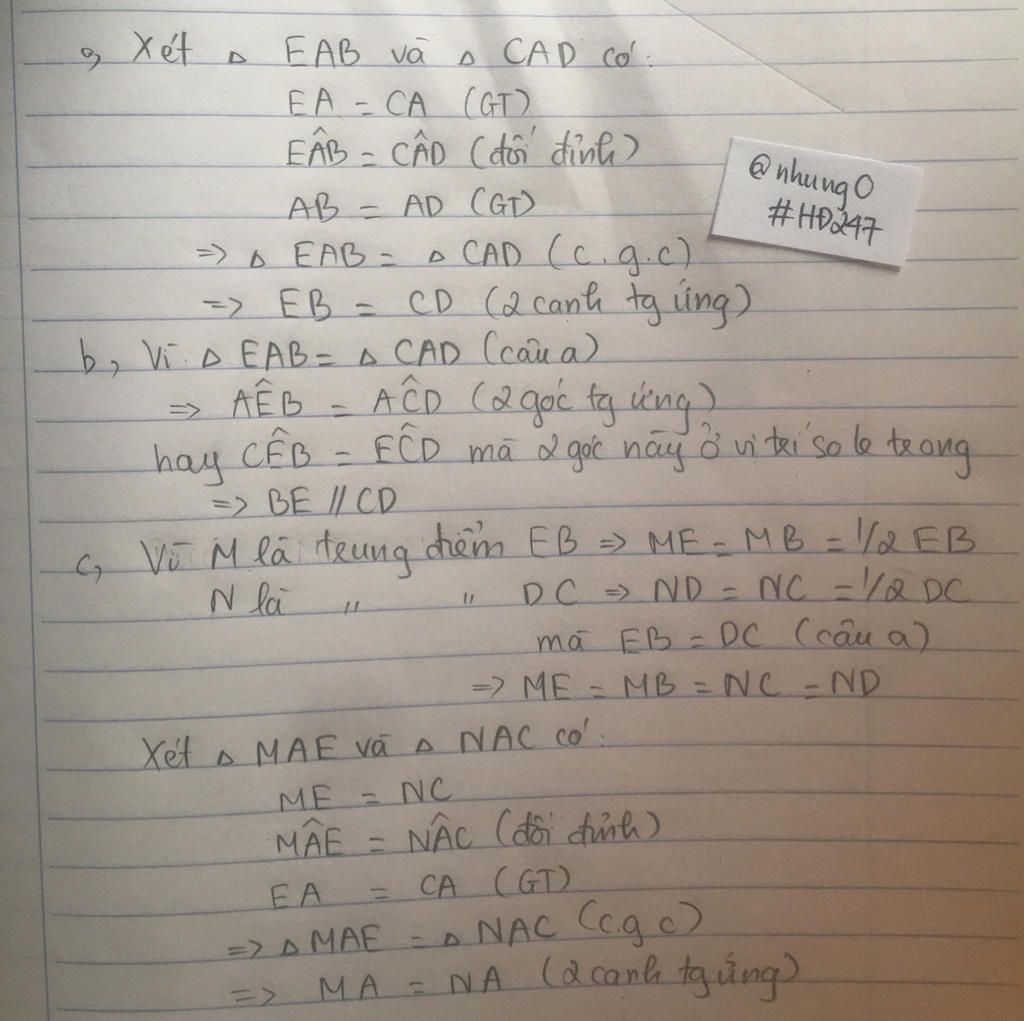 a, Xét △ EAB và △ CAD có:
EA = CA (GT)
EÂB = CÂD (đối đỉnh)
AB = AD (GT)
=> △ EAB = △ CAD (c.g.c)
=> EB = CD (2 cạnh tg ứng)
@nhung0
#HĐ247
b, Vì △ EAB = △ CAD (câu a)
=> AÊB = AĈD (2 góc tg ứng)
hay CÊB = EĈD mà 2 góc này ở vị trí so le trong
=> BE // CD
c, Vì M là trung điểm EB => ME = MB = 1/2 EB
N là " " DC => ND = NC = 1/2 DC
mà EB = DC (câu a)
=> ME = MB = NC = ND
Xét △ MAE và △ NAC có:
ME = NC
MÂE = NÂC (đối đỉnh)
EA = CA (GT)
=> △ MAE = △ NAC (c.g c)
=> MA = NA (2 cạnh tg ứng)